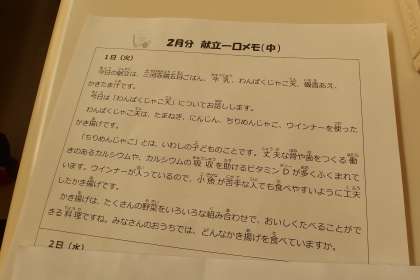 2月分 献立一口メモ(中)
1日(火)
今日の献立は、三河赤鶏五目ごはん、牛乳、わんぱくじゃこ天、磯香あえ、
かきたま汁です。
今日は「わんぱくじゃこ天」についてお話しします。
わんぱくじゃこ天は、たまねぎ、にんじん、ちりめんじゃこ、ウインナーを使った
かき揚げです。
「ちりめんじゃこ」とは、いわしの子どものことです。丈夫な骨や歯をつくる働
きのあるカルシウムや、カルシウムの吸収を助けるビタミンDが多くふくまれて
います。ウインナーが入っているので、小魚が苦手な人でも食べやすいように工夫
したかき揚げです。
かき揚げは、たくさんの野菜をいろいろな組み合わせで、おいしくたべることがで
きる料理ですね。みなさんのおうちでは、どんなかき揚げを食べていますか。
2日(水)